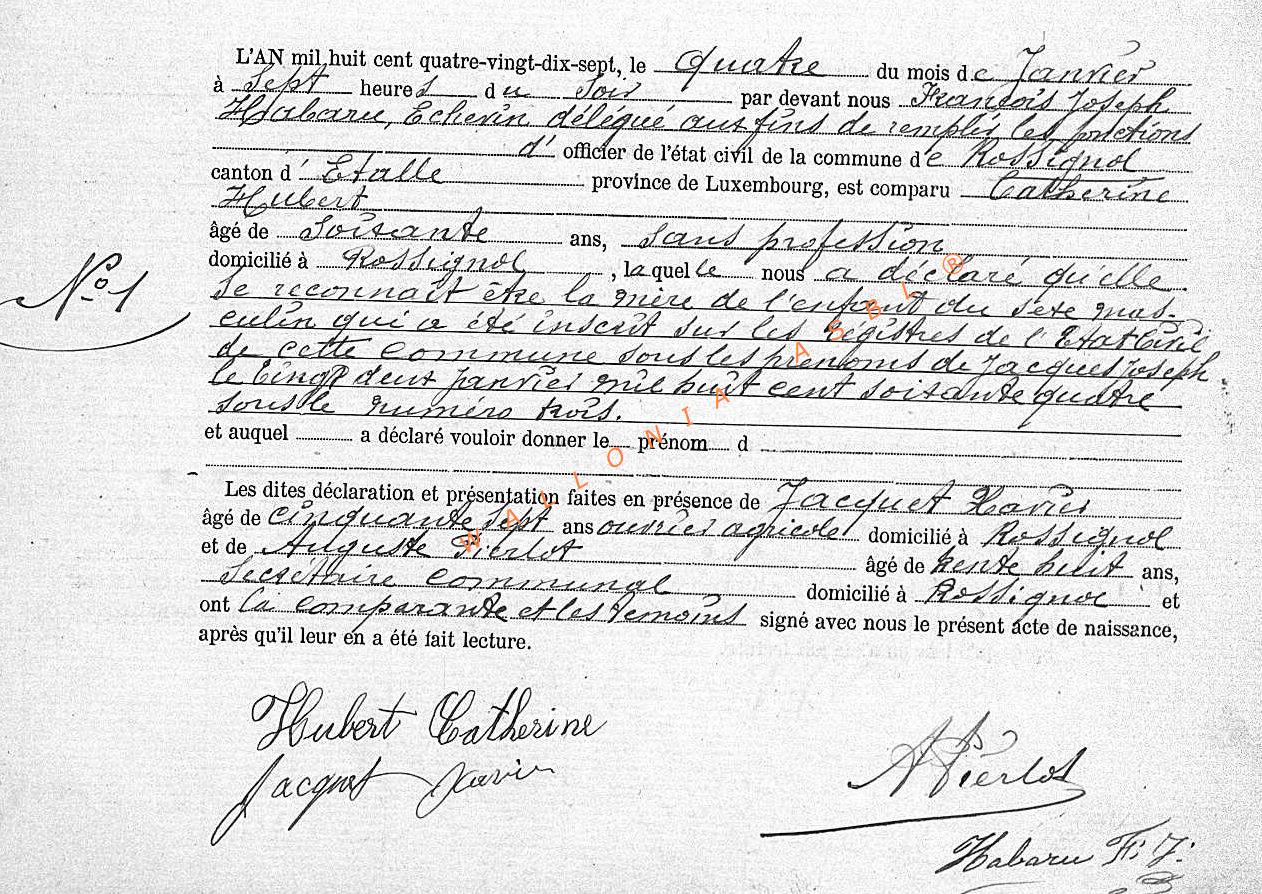 L'AN mil huit cent quatre-vingt-dix-sept, le Quatre du mois de Janvier
à Sept heures du Soir par devant nous François Joseph
Habaru, Echevin délégué aux fins de remplir les fonctions
d' officier de l'état civil de la commune de Rossignol
canton d' Etalle province de Luxembourg, est comparu Catherine
Hubert
âgé de Soixante ans, sans profession
domicilié à Rossignol, laquelle nous a déclaré qu'elle
se reconnaît être la mère de l'enfant du sexe mas-
culin qui a été inscrit sur les régistres de l'Etat Civil
de cette commune sous les prénoms de Jacques Joseph
le vingt deux Janvier mil huit cent soixante quatre
sous le numéro trois.
et auquel a déclaré vouloir donner le prénom d
Les dites déclaration et présentation faites en présence de Jacquet Xavier
âgé de cinquante sept ans ouvrier agricole domicilié à Rossignol
et de Auguste Pierlot âgé de trente huit ans,
Secrétaire communal domicilié à Rossignol et
ont la comparante et les temoins signé avec nous le présent acte de naissance,
après qu'il leur en a été fait lecture.
N° 1
WALLONIA ASBL ®
Hubert Catherine
Jacquet Xavier
A Pierlot
Habaru F. J.